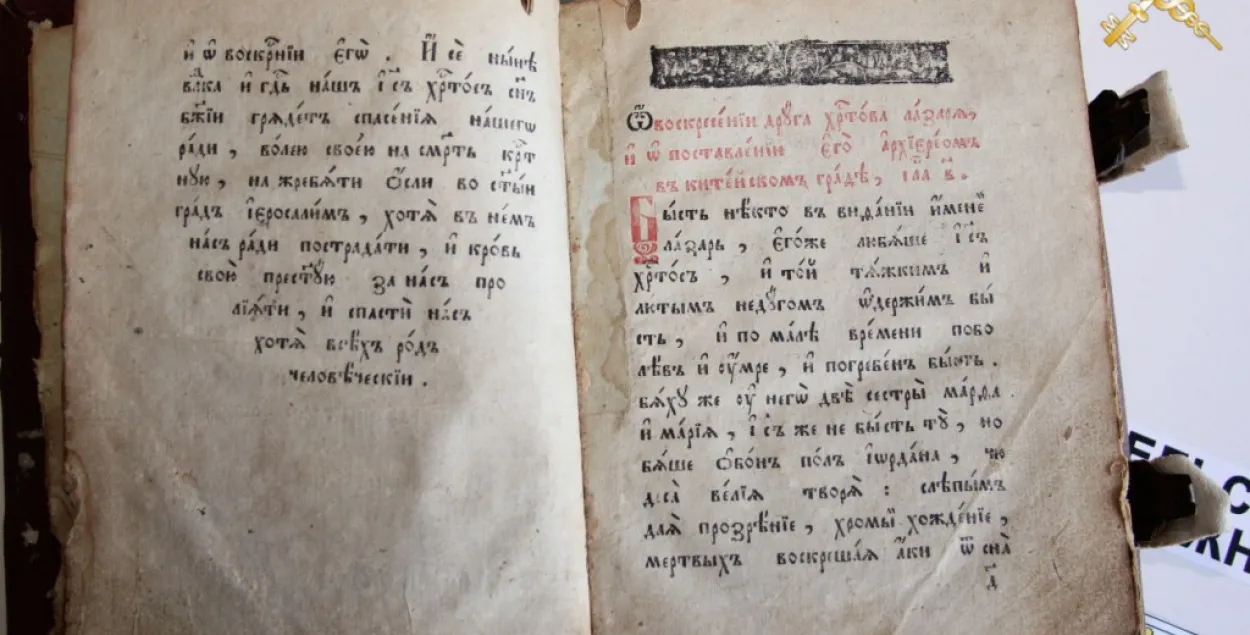 и҆ ѡ҆ воскрⷭ҇нїи є҆гѡ̀ . И҆ сѐ ны́нѣ
влⷣка и҆ гдⷭ҇ь на́шъ і҆с҃ъ хрⷭ҇то́съ сн҃ъ
бж҃їи гряде́тъ спасе́нїѧ на́шегѡ
ра́ди , во́лею свое́ю на сме́рть крⷭ҇т
ную , на жребѧ́ти ѻ҆́сли во ст҃ы́и
гра́дъ і҆еросали́мъ , хотѧ̀ в не́мъ
на́съ ра́ди пострада́ти , и҆ кро́вь
свою̀ прест҃у́ю за на́съ про
лїѧ́ти , и҆ спастѝ на́съ
хотѧ̀ всѣ́хъ ро́дъ
человѣ́ческїи .
Ѡ҆ воскресе́нїи дрꙋ́га хрⷭ҇то́ва ла́заря ,
и҆ ѡ҆ поставле́нїи є҆гѡ̀ а҆рхїере́омъ
въ ките́йскомъ гра́дѣ , гла в҃ .
Бы́сть нѣ́кто въ виѳа́нїи и҆́менеⷨ
ла́зарь , є҆го́же любѧ́ше і҆с҃ъ
хрⷭ҇то́съ , и҆ то́й тѧ́жкимъ и҆
лю́тымъ неду́гомъ ѡ҆держи́мъ бы́
сть , и҆ по ма́лѣ вре́мени побо
лѣ́въ и҆ оу҆́мре , и҆ погребе́нъ бы́сть .
бѧ́ху же оу҆ негѡ̀ двѣ̀ сестры̀ ма́рѳа
и҆ марі́ѧ , і҆с҃ъ же не бы́сть тꙋ̀ , но
бѧ́ше ѻ҆бо́нъ по́лъ і҆ѡрда́на , чю
деса̀ ве́лїѧ творѧ̀ : слѣпы́мъ
даѧ̀ прозрѣ́нїе , хромы́мъ хожде́нїе ,
мертвыхъ воскреша́ѧ а҆́ки ѿ сна̀
д҃